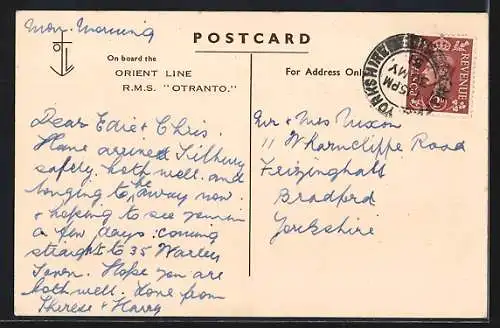 Mon. Morning
POSTCARD
On board the
ORIENT LINE
R.M.S. "OTRANTO."
For Address Only
REVENUE
YORKSHIRE
PM
MY
Dear Edie & Chris.
Have arrived Tilbury
safely, both well. and
longing to be away now.
& hoping to see you in
a few days. coming
straight to 35 Warley
Town. Hope you are
both well. Love from
Therese & Harry
Mr and Mrs Nixon
11 Wharncliffe Road
Frizinghall
Bradford
Yorkshire